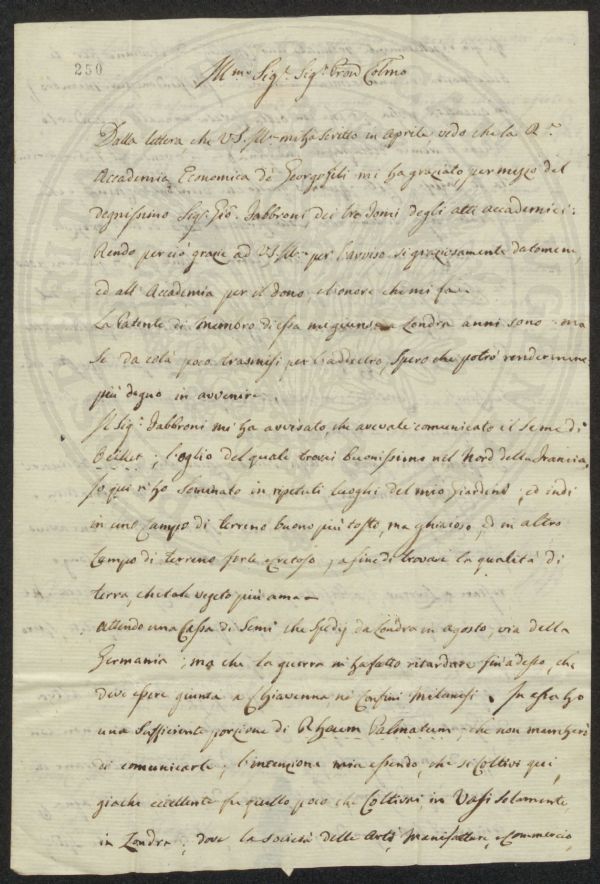 250
Ill.mo Sig.r Sig.r Pron Colmo
Dalla lettera che VS. Ill.ma mi ha scritto in Aprile, vedo che la R.
Accademia Economica de' Georgofili mi ha graziato, per mezzo del
degnissimo Sig.r Gio. Fabbroni dei tre Tomi degli atti accademici:
Rendo perciò grazie ad VS. Ill.ma per l'avviso sì graziosamente datomene,
ed all'Accademia per il dono, e l'onore che mi fa.
La Patente di membro di essa mi giunse a Londra anni sono ma
se da colà poco trasmisi per l'addietro, spero che potrò rendermene
più degno in avvenire.
Il Sig.r Fabbroni mi ha avvisato, che avevale comunicato il seme di
; l'oglio del quale trovai buonissimo nel Nord della Francia.
Io qui n'ho seminato in ripetuti luoghi del mio Giardino; ed indi
in uno Campo di terreno buono più tosto, ma ghiaioso, ed in altro
Campo di terreno forte e cretoso, a fine di trovare la qualità di
terra, che tale vegeto più ama.
Attendo una Cassa di Semi che spedij da Londra in agosto, via della
Germania; ma che la guerra m'ha fatto ritardare fin adesso, che
deve essere giunta a Chiavenna ne' Confini Milanesi. In essa ho
una sufficiente porzione di Rheum Palmatum, che non mancherò
di comunicarle, l'intenzione mia essendo, che si coltivi qui,
giache eccellente fu quello poco che Coltivai, in Vasi solamente,
in Londra; dove la società delle Arti, Manifatture, e Commercio,